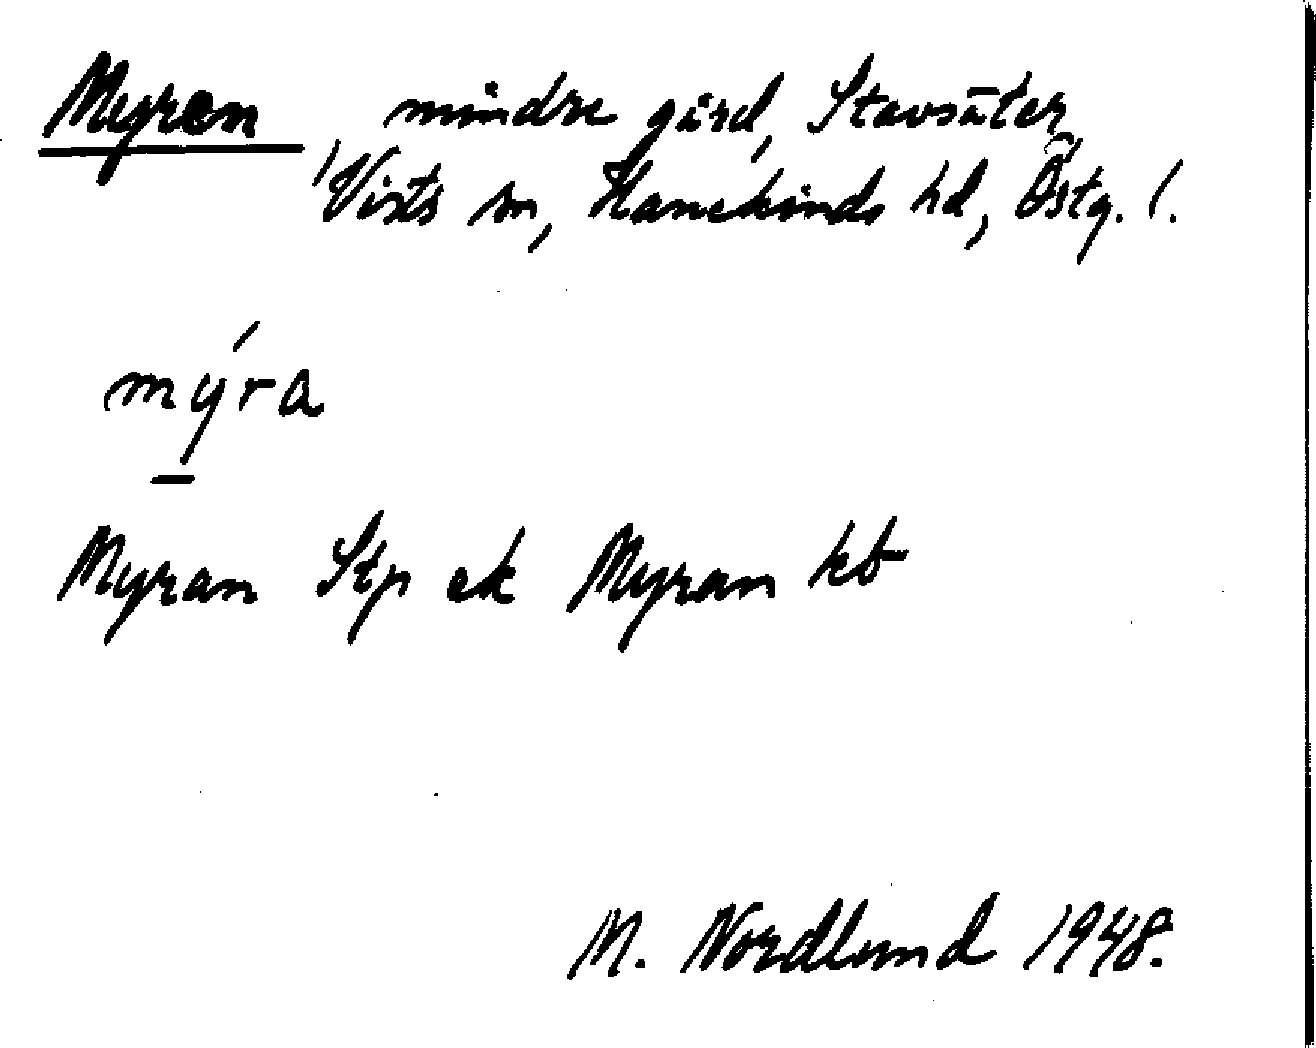 Myran mindre gård, Stavsäter,
Vists sn, Hanekinds hd, Östg. l.
mýra
Myran Stp ek Myran kb
M. Nordlund 1948.